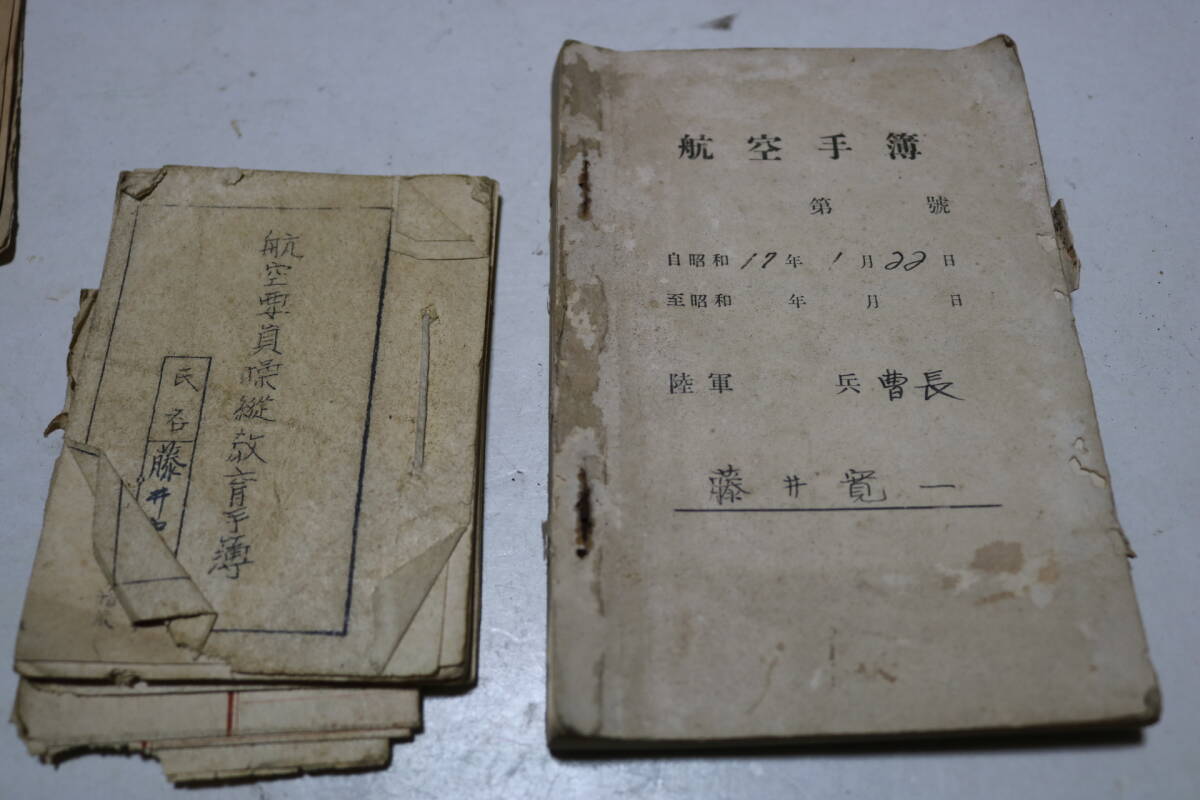 航空要員操縦教育手簿
氏名
藤井
航空手簿
第 號
自昭和17年1月22日
至昭和 年 月 日
陸軍 兵曹長
藤井寛一